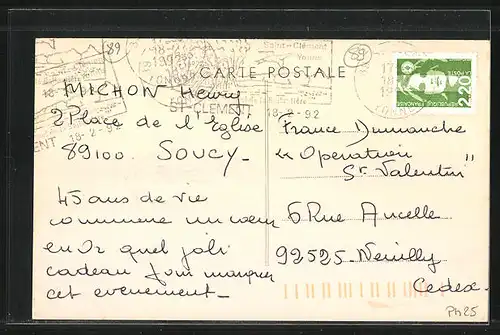 89
Saint-Clément
Yonne
89
CARTE POSTALE
2,20
LA POSTE
REPUBLIQUE FRANÇAISE
MICHON Henry
ST-CLEMENT
18-2-92
2 Place de l'Eglise
18-2-9
89100. SOUCY.
45 ans de vie
commune un coeur
en Or quel joli
cadeau pour marquer
cet evenement.
France Dimanche
"Operation
St Valentin"
6 Rue Ancelle
92525. Neuilly
Cedex.
Ph25